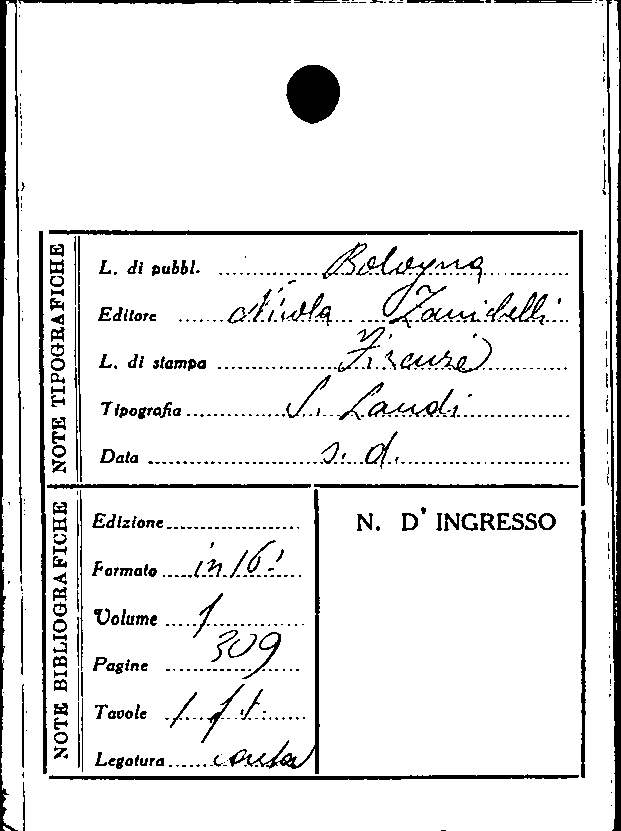 NOTE TIPOGRAFICHE
L. di pubbl. Bologna
Editore Nicola Zanichelli
L. di stampa Firenze
Tipografia S. Landi
Data s. d.
NOTE BIBLIOGRAFICHE
Edizione
Formato in 16º
Volume 1
Pagine 309
Tavole 1 f. t.
Legatura carta
N. D' INGRESSO